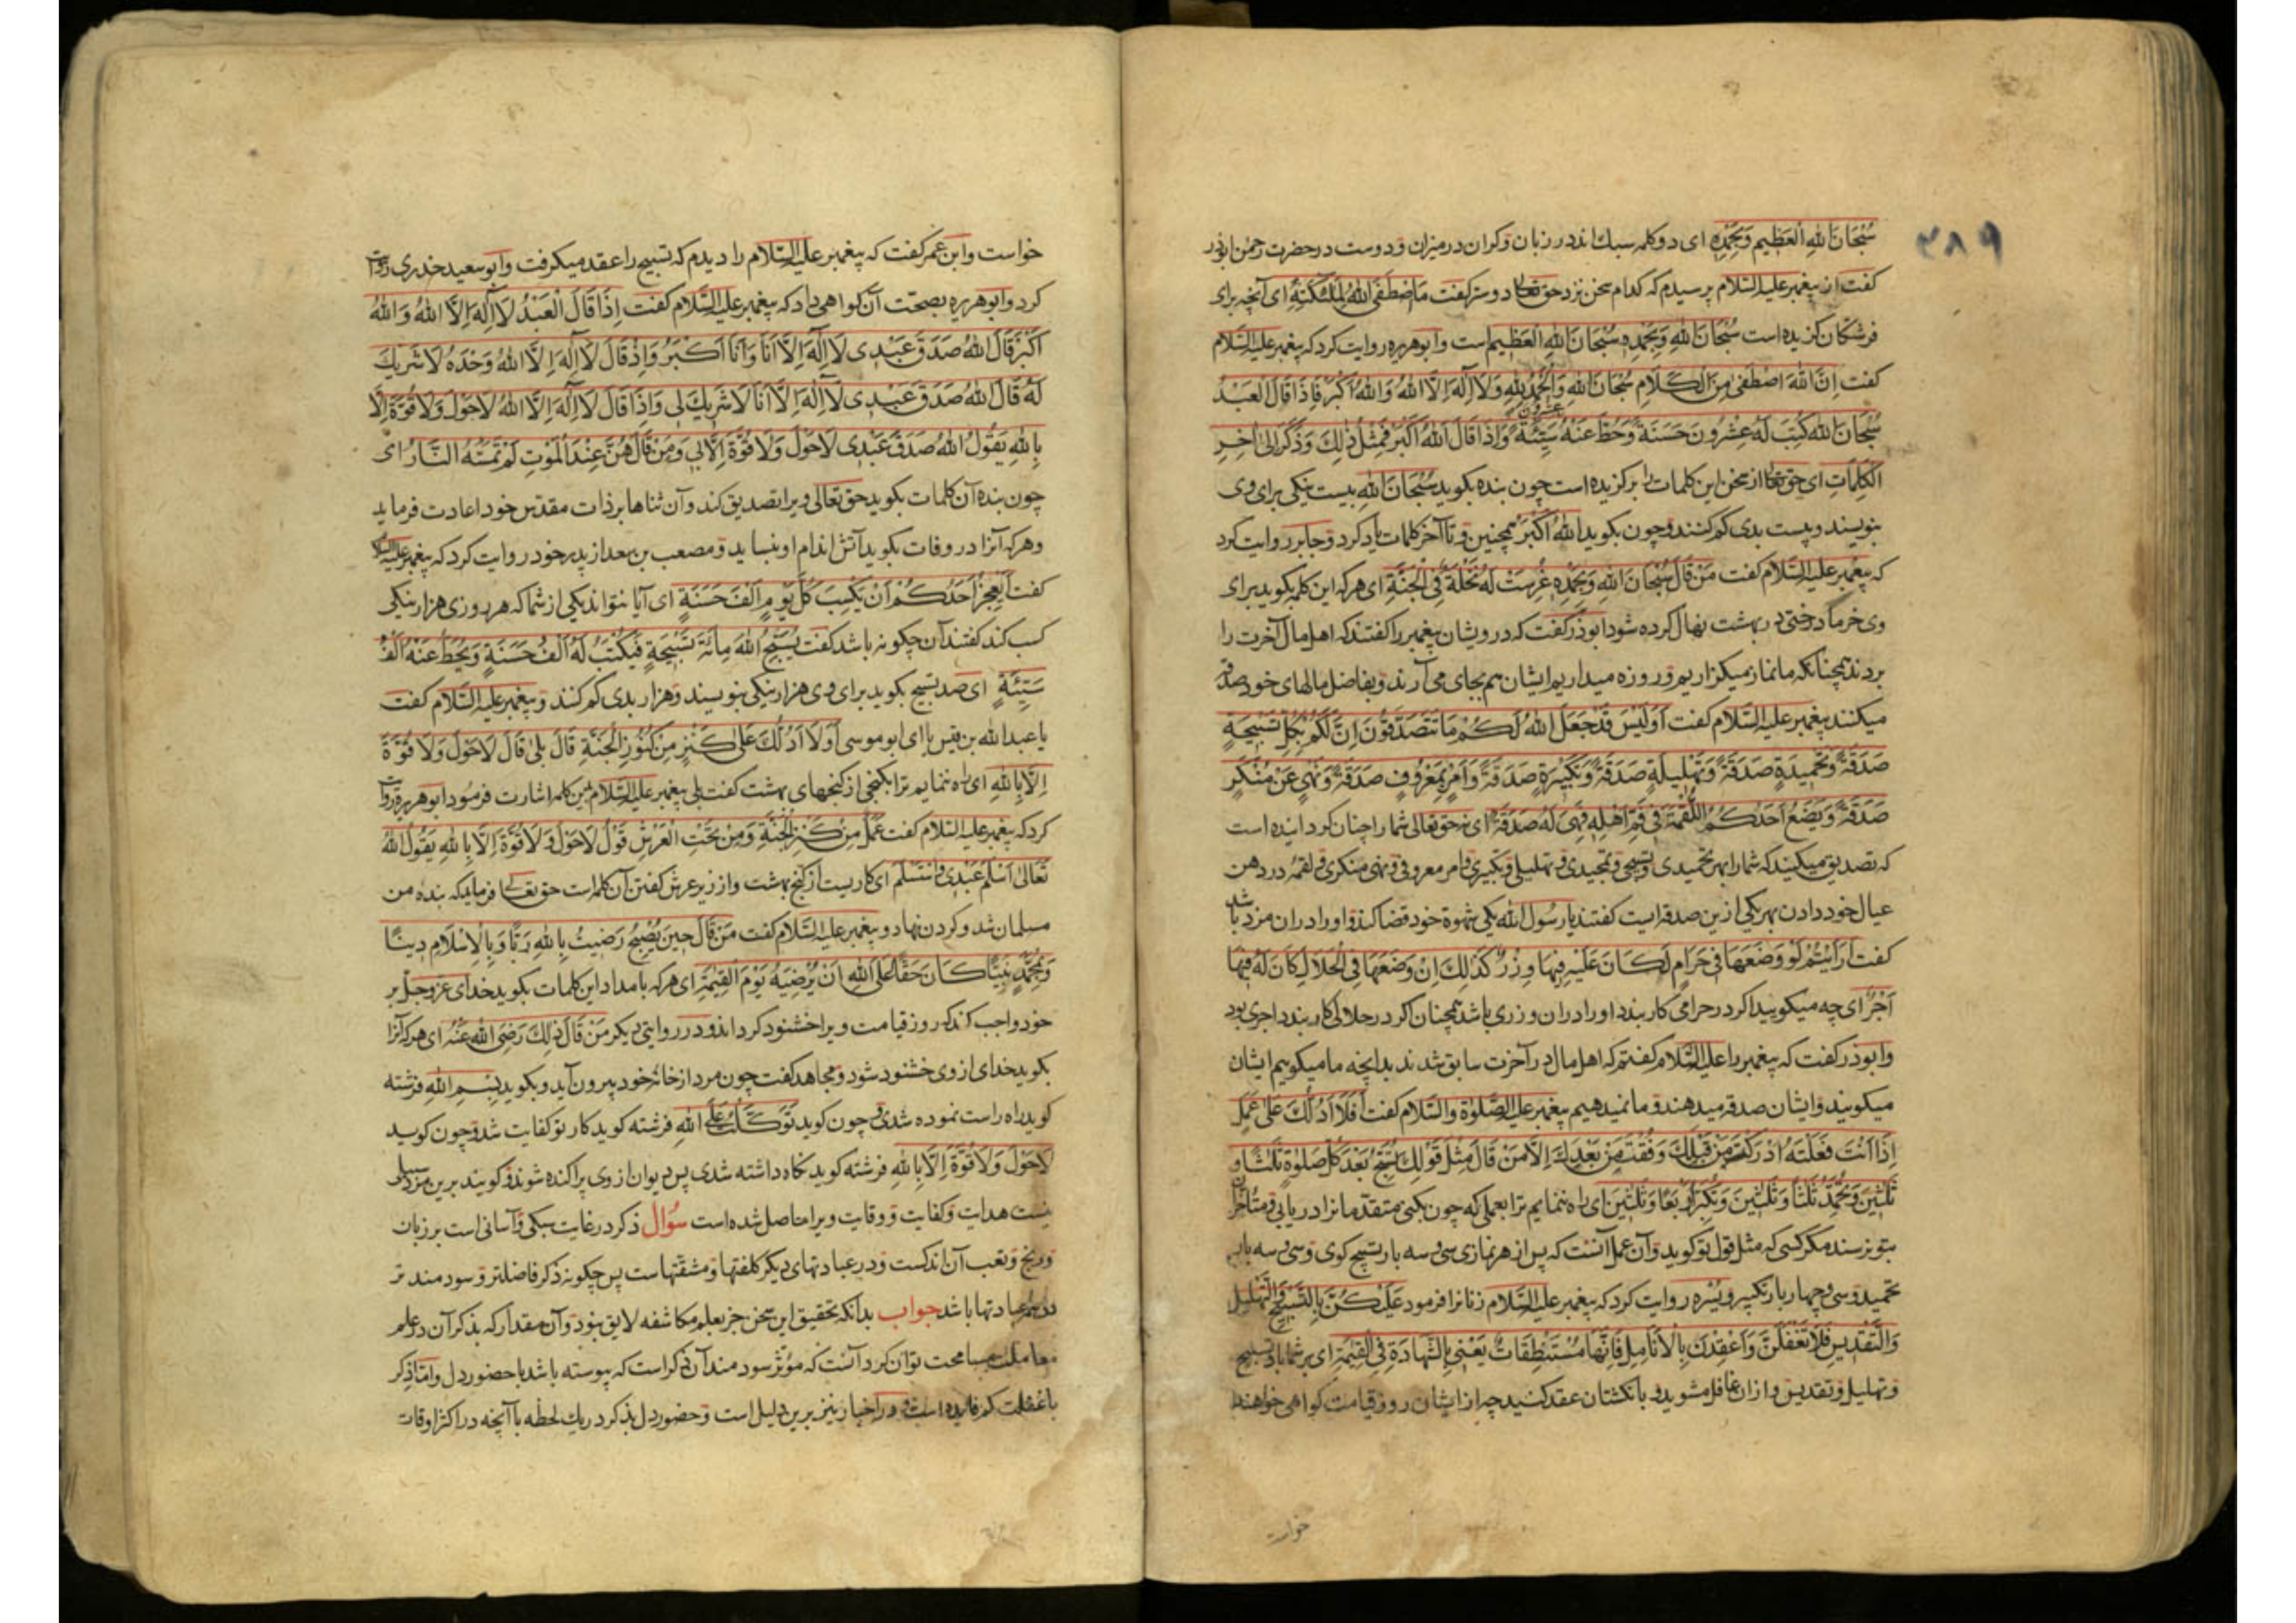 ۳۸۹
سُبْحَانَ اللهِ الْعَظِيمِ وَبِحَمْدِهِ ای دو کلمه سبک اند در زبان و کران در میزان و دوست در حضرت رحمن ابوذر
کفت از پیغمبر علیه السلام پرسیدم که کدام سخن نزد حق تعالی دوستر کفت مَا اصْطَفَى اللهُ لِمَلٰئِكَتِهِ ای آنچه برای
فرشتکان کزیده است سُبْحَانَ اللهِ وَبِحَمْدِهِ سُبْحَانَ اللهِ الْعَظِيمِ است و ابوهریره روایت کرد که پیغمبر علیه السلام
کفت اِنَّ اللهَ اصْطَفٰى مِنَ الْكَلَامِ سُبْحَانَ اللهِ وَالْحَمْدُ لِلهِ وَلَا اِلٰهَ اِلَّا اللهُ وَاللهُ اَكْبَرُ فَاِذَا قَالَ الْعَبْدُ
سُبْحَانَ اللهِ كُتِبَ لَهُ عِشْرُونَ حَسَنَةً وَحُطَّ عَنْهُ عشرون سَيِّئَةً وَاِذَا قَالَ اللهُ اَكْبَرُ فَمِثْلُ ذٰلِكَ وَذَكَرَ اِلٰى اٰخِرِ
الْكَلِمَاتِ ای حق تعالی از سخن این کلمات را برکزیده است چون بنده بکوید سُبْحَانَ اللهِ بیست نیکی برای وی
بنویسند و بیست بدی کم کنند و چون بکوید اللهُ اَكْبَرُ همچنین و تا آخر کلمات یاد کرد و جابر روایت کرد
که پیغمبر علیه السلام کفت مَنْ قَالَ سُبْحَانَ اللهِ وَبِحَمْدِهِ غُرِسَتْ لَهُ نَخْلَةٌ فِي الْجَنَّةِ ای هر که این کلمه بکوید برای
وی خرما درختی در بهشت نهال کرده شود ابوذر کفت که درویشان پیغمبر را کفتند که اهل مال آخرت را
بردند همچنانکه ما نماز میکزاریم و روزه میداریم ایشان هم بجای می آرند و بفاضل مالهای خود صدقه
میکنند پیغمبر علیه السلام کفت اَوَلَيْسَ قَدْ جَعَلَ اللهُ لَكُمْ مَا تَتَصَدَّقُونَ اِنَّ لَكُمْ بِكُلِّ تَسْبِيحَةٍ
صَدَقَةً وَتَحْمِيدَةٍ صَدَقَةً وَتَهْلِيلَةٍ صَدَقَةً وَتَكْبِيرَةٍ صَدَقَةً وَاَمْرٍ بِمَعْرُوفٍ صَدَقَةً وَنَهْيٍ عَنْ مُنْكَرٍ
صَدَقَةً وَيَضَعُ اَحَدُكُمُ اللُّقْمَةَ فِي فَمِ اَهْلِهِ فَهِيَ لَهُ صَدَقَةٌ ای نه حق تعالی شما را چنان کردانیده است
که تصدیق میکنید که شما را بهر تحمیدی و تسبیحی و تمجیدی و تهلیلی و تکبیری و امر معروفی و نهی منکری و لقمهٔ در دهن
عیال خود دادن بهر یکی ازین صدقه است کفتند یا رسول الله یکی شهوة خود قضا کند و او را در ان مزد باشد
کفت اَرَاَيْتُمْ لَوْ وَضَعَهَا فِي حَرَامٍ لَكَانَ عَلَيْهِ فِيهَا وِزْرٌ كَذٰلِكَ اِنْ وَضَعَهَا فِي الْحَلَالِ كَانَ لَهُ فِيهَا
اَجْرٌ ای چه میکویید اکر در حرامی کار بندد او را در ان وزری باشد همچنان اکر در حلالی کار بندد اجری بود
و ابوذر کفت که پیغمبر را علیه السلام کفتم که اهل مال در آخرت سابق شدند بدانچه ما میکوییم ایشان
میکویند و ایشان صدقه میدهند و ما نمیدهیم پیغمبر علیه الصلوة والسلام کفت اَفَلَا اَدُلُّكَ عَلٰى عَمَلٍ
اِذَا اَنْتَ فَعَلْتَهُ اَدْرَكْتَ مَنْ قَبْلَكَ وَفُقْتَ مَنْ بَعْدَكَ اِلَّا مَنْ قَالَ مِثْلَ قَوْلِكَ تُسَبِّحُ بَعْدَ كُلِّ صَلٰوةٍ ثَلٰثًا وَ
ثَلٰثِينَ وَتُحَمِّدُ ثَلٰثًا وَثَلٰثِينَ وَتُكَبِّرُ اَرْبَعًا وَثَلٰثِينَ ای راه ننمایم ترا بعملی که چون بکنی متقدمانرا دریابی و متأخران
بتو نرسند مکر کسی که مثل قول تو کوید و آن عمل آنست که پس از هر نمازی سی و سه بار تسبیح کوی و سی و سه بار
تحمید و سی و چهار بار تکبیر و یُسره روایت کرد که پیغمبر علیه السلام زنانرا فرمود عَلَيْكُنَّ بِالتَّسْبِيحِ وَالتَّهْلِيلِ
وَالتَّقْدِيسِ فَلَا تَغْفَلْنَ وَاعْقِدْنَ بِالْاَنَامِلِ فَاِنَّهَا مُسْتَنْطَقَاتٌ يَعْنِي بِالشَّهَادَةِ فِي الْقِيٰمَةِ ای بر شما باد تسبیح
و تهلیل و تقدیس و ازان غافل مشوید و بانکشتان عقد کنید چه از ایشان روز قیامت کواهی خواهند
خواست
خواست و ابن عمر کفت که پیغمبر علیه السلام را دیدم که تسبیح را عقد میکرفت و ابو سعید خدری روایت
کرد و ابوهریره بصحت آن کواهی داد که پیغمبر علیه السلام کفت اِذَا قَالَ الْعَبْدُ لَا اِلٰهَ اِلَّا اللهُ وَاللهُ
اَكْبَرُ قَالَ اللهُ صَدَقَ عَبْدِي لَا اِلٰهَ اِلَّا اَنَا وَاَنَا اَكْبَرُ وَاِذْ قَالَ لَا اِلٰهَ اِلَّا اللهُ وَحْدَهُ لَا شَرِيكَ
لَهُ قَالَ اللهُ صَدَقَ عَبْدِي لَا اِلٰهَ اِلَّا اَنَا لَا شَرِيكَ لِي وَاِذَا قَالَ لَا اِلٰهَ اِلَّا اللهُ لَا حَوْلَ وَلَا قُوَّةَ اِلَّا
بِاللهِ يَقُولُ اللهُ صَدَقَ عَبْدِي لَا حَوْلَ وَلَا قُوَّةَ اِلَّا بِي وَمَنْ قَالَهُنَّ عِنْدَ الْمَوْتِ لَمْ تَمَسَّهُ النَّارُ ای
چون بنده آن کلمات بکوید حق تعالی ویرا تصدیق کند و آن ثناها بر ذات مقدس خود اعادت فرماید
و هر که آنرا در وفات بکوید آتش اندام او بنساید و مصعب بن سعد از پدر خود روایت کرد که پیغمبر علیه السلام
کفت اَيَعْجِزُ اَحَدُكُمْ اَنْ يَكْسِبَ كُلَّ يَوْمٍ اَلْفَ حَسَنَةٍ ای آیا نتواند یکی از شما که هر روزی هزار نیکی
کسب کند کفتند آن چکونه باشد کفت يُسَبِّحُ اللهَ مِائَةَ تَسْبِيحَةٍ فَيُكْتَبُ لَهُ اَلْفُ حَسَنَةٍ وَيُحَطُّ عَنْهُ اَلْفُ
سَيِّئَةٍ ای صد تسبیح بکوید برای وی هزار نیکی بنویسند و هزار بدی کم کنند و پیغمبر علیه السلام کفت
یا عبد الله بن قیس یا ای ابو موسی اَوَلَا اَدُلُّكَ عَلٰى كَنْزٍ مِنْ كُنُوزِ الْجَنَّةِ قَالَ بَلٰى قَالَ لَا حَوْلَ وَلَا قُوَّةَ
اِلَّا بِاللهِ ای راه ننمایم ترا بکنجی از کنجهای بهشت کفت بلی پیغمبر علیه السلام بدین کلمه اشارت فرمود ابوهریره روایت
کرد که پیغمبر علیه السلام کفت عَمَلٌ مِنْ كَنْزِ الْجَنَّةِ وَمِنْ تَحْتِ الْعَرْشِ قَوْلُ لَا حَوْلَ وَلَا قُوَّةَ اِلَّا بِاللهِ يَقُولُ اللهُ
تَعَالٰى اَسْلَمَ عَبْدِي وَاسْتَسْلَمَ ای کاریست از کنج بهشت و از زیر عرش کفتن آن کلمه است حق تعالی فرماید که بنده من
مسلمان شد و کردن نهاد و پیغمبر علیه السلام کفت مَنْ قَالَ حِينَ يُصْبِحُ رَضِيتُ بِاللهِ رَبًّا وَبِالْاِسْلَامِ دِينًا
وَبِمُحَمَّدٍ نَبِيًّا كَانَ حَقًّا عَلَى اللهِ اَنْ يُرْضِيَهُ يَوْمَ الْقِيٰمَةِ ای هر که بامداد این کلمات بکوید خدای عز و جل بر
خود واجب کند که روز قیامت ویرا خشنود کرداند و در روایتی دیکر مَنْ قَالَ ذٰلِكَ رَضِيَ اللهُ عَنْهُ ای هر که آنرا
بکوید خدای از وی خشنود شود و مجاهد کفت چون مرد از خانهٔ خود بیرون آید و بکوید بِسْمِ اللهِ فرشته
کوید راه راست نموده شدی و چون کوید تَوَكَّلْتُ عَلَى اللهِ فرشته کوید کار تو کفایت شد و چون کوید
لَا حَوْلَ وَلَا قُوَّةَ اِلَّا بِاللهِ فرشته کوید نکاه داشته شدی پس دیوان از وی پراکنده شوند و کویند برین مرد سبیلی
نیست هدایت و کفایت و وقایت ویرا حاصل شده است سؤال ذکر در غایت سبکی و آسانی است بر زبان
و رنج و تعب آن اندکست و در عبادتهای دیکر کلفتها و مشقتهاست پس چکونه ذکر فاضلتر و سودمند تر
در همه عبادتها باشد جواب بدانکه تحقیق این سخن جز بعلم مکاشفه لایق نبود و آن مقدار که بذکر آن در علم
معاملت مسامحت توان کرد آنست که مؤثر سودمند آن ذکر است که پیوسته باشد با حضور دل و اما ذکر
با غفلت کم فایده است و در اخبار نیز برین دلیل است و حضور دل بذکر در یک لحظه با آنچه در اکثر اوقات